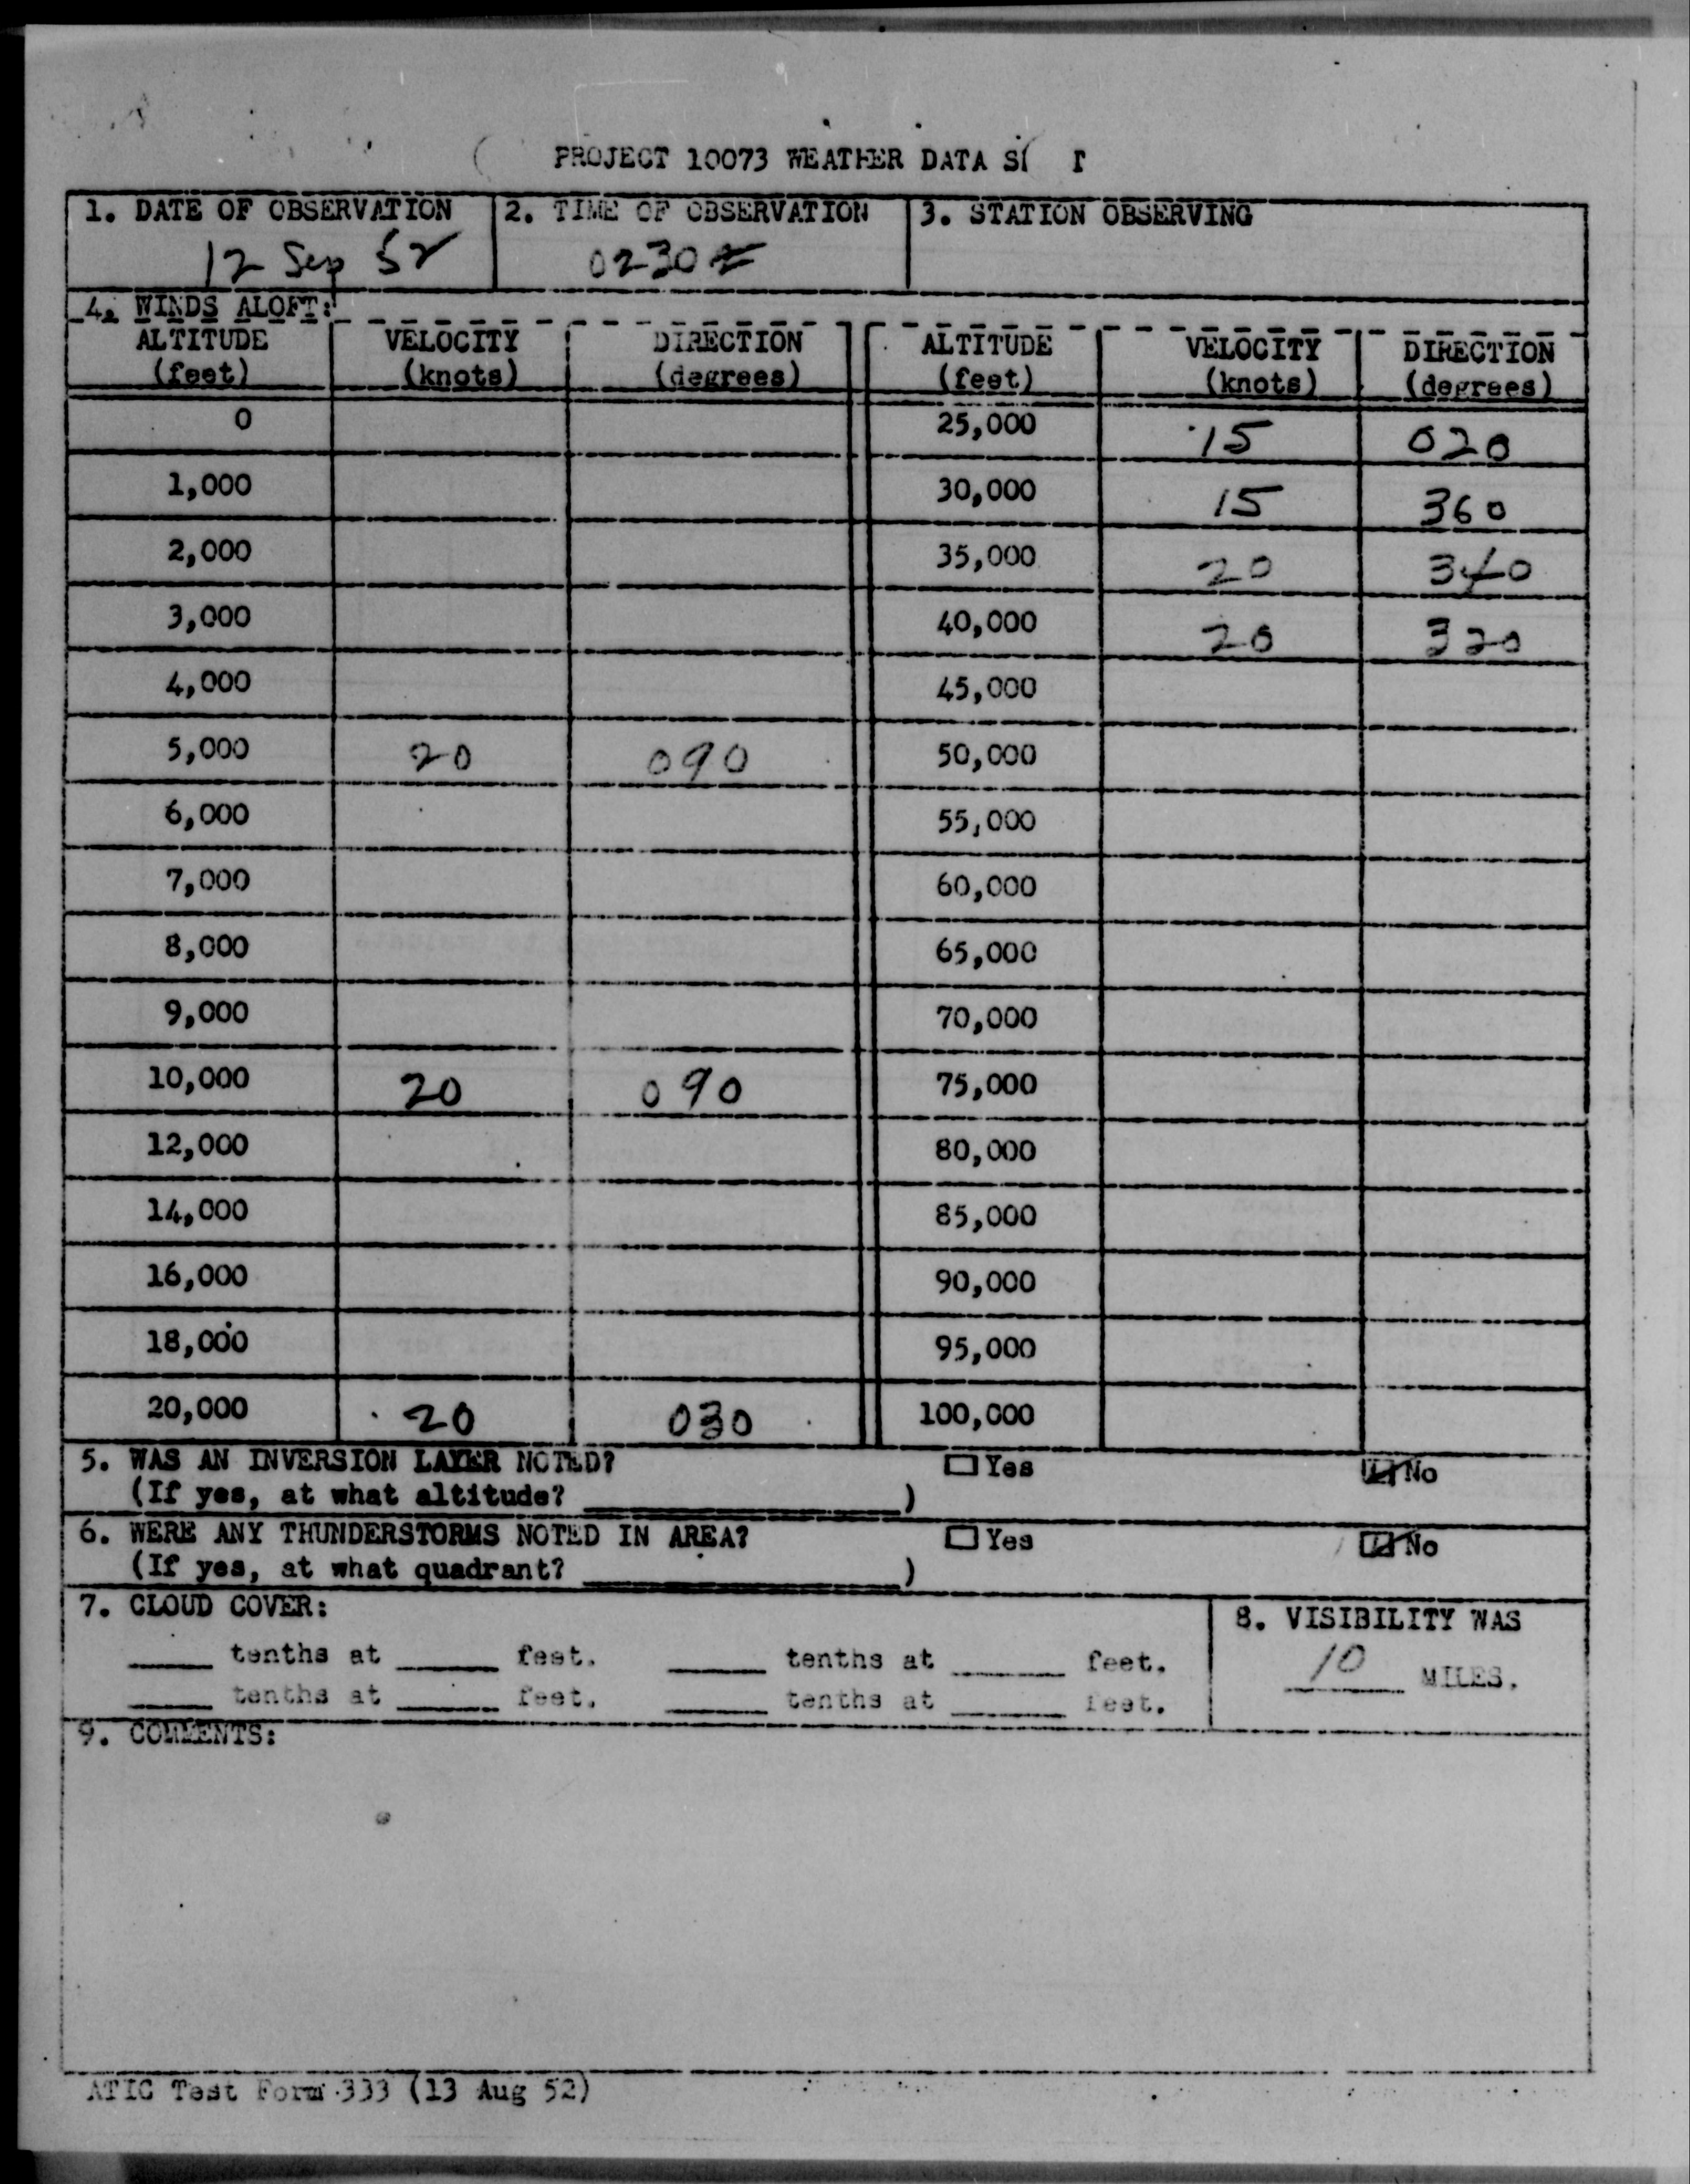 PROJECT 10073 WEATHER DATA
1. DATE OF OBSERVATION 2. TIME OF OBSERVATION 3. STATION OBSERVING
12 Sep 52 0230Z
4. WINDS ALOFT:
ALTITUDE VELOCITY DIRECTION ALTITUDE VELOCITY DIRECTION
(feet) (knots) (degrees) (feet) (knots) (degrees)
0 25,000 15 020
1,000 30,000 15 360
2,000 35,000 20 340
3,000 40,000 20 320
4,000 45,000
5,000 20 090 50,000
6,000 55,000
7,000 60,000
8,000 65,000
9,000 70,000
10,000 20 090 75,000
12,000 80,000
14,000 85,000
16,000 90,000
18,000 95,000
20,000 20 030 100,000
5. WAS AN INVERSION LAYER NOTED? Yes No
(If yes, at what altitude? )
6. WERE ANY THUNDERSTORMS NOTED IN AREA? Yes No
(If yes, at what quadrant? )
7. CLOUD COVER: 8. VISIBILITY WAS
tenths at feet. tenths at feet. 10 MILES.
tenths at feet. tenths at feet.
9. COMMENTS:
ATIC Test Form 333 (13 Aug 52)